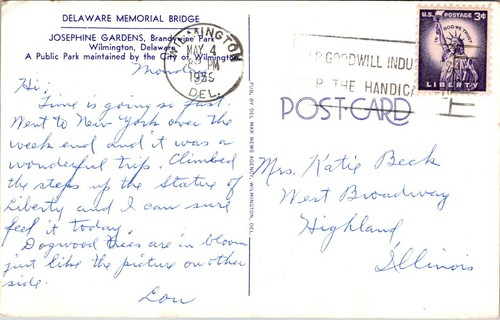 DELAWARE MEMORIAL BRIDGE
JOSEPHINE GARDENS, Brandywine Park
Wilmington, Delaware
A Public Park maintained by the City of Wilmington
Monday
Hi:
Time is going so fast.
Went to New York over the
week end and it was a
wonderful trip. Climbed
the steps up the Statue of
Liberty and I can sure
feel it today.
Dogwood trees are in bloom
just like the picture on other
side.
Lou
PUB. BY DEL MAR NEWS AGENCY, WILMINGTON, DEL.
WILMINGTON
MAY 4
PM
DEL.
GOODWILL INDU
THE HANDICA
U.S. POSTAGE 3¢
IN GOD WE TRUST
LIBERTY
POST CARD
Mrs. Katie Beck
West Broadway
Highland
Illinois